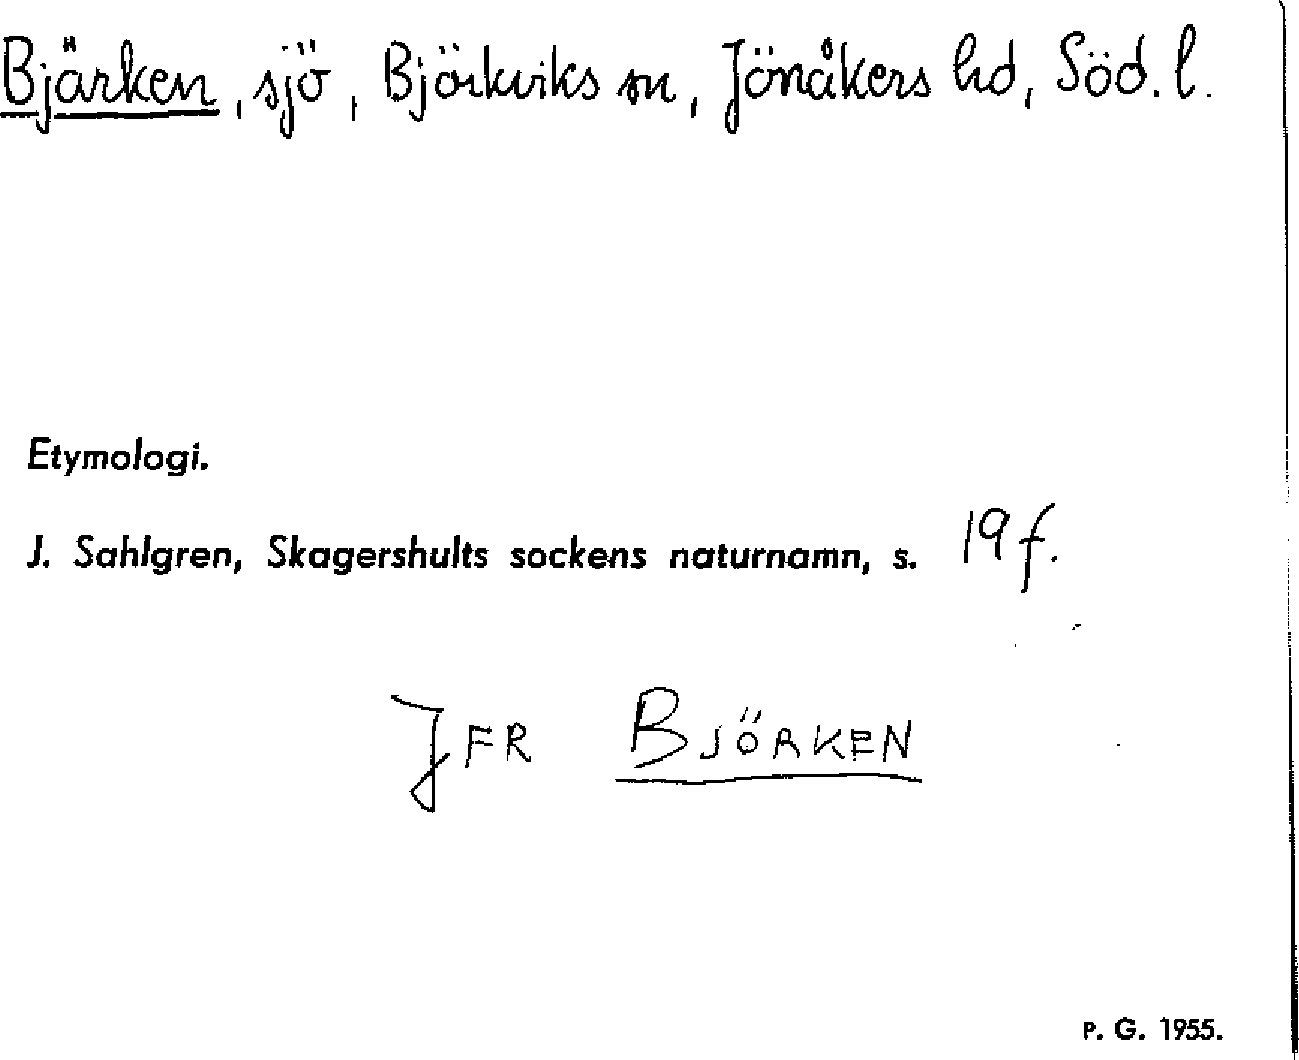 Bjärken, sjö, Björkviks sn, Jönåkers hd, Söd. l.
Etymologi.
J. Sahlgren, Skagershults sockens naturnamn, s. 19 f.
JFR BJÖRKEN
P. G. 1955.